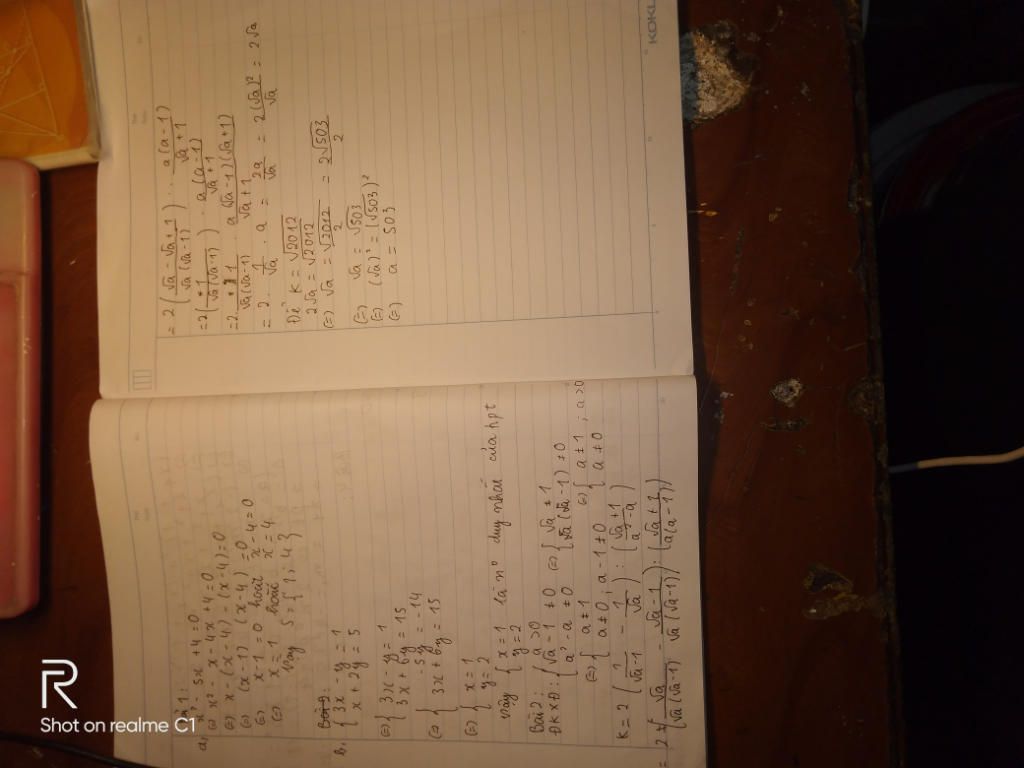 Bài 1:
a, x² - 5x + 4 = 0
(=) x² - x - 4x + 4 = 0
(=) x - (x - 4) - (x - 4) = 0
(=) (x - 1) (x - 4) = 0
(=) x - 1 = 0 hoặc x - 4 = 0
(=) x = 1 hoặc x = 4
Vậy S = { 1 ; 4 }
b, { 3x - y = 1
x + 2y = 5
(=) { 3x - y = 1
3x + 6y = 15
(=) { - 5y = -14
3x + 6y = 15
(=) { x = 1
y = 2
Vậy { x = 1 là n° duy nhất của hpt
y = 2
Bài 2:
ĐKXĐ: { a > 0
√a - 1 ≠ 0 (=) { √a ≠ 1
a² - a ≠ 0 √a (√a - 1) ≠ 0
(=) { a ≠ 1
a ≠ 0 ; a - 1 ≠ 0 (=) { a ≠ 1 ; a > 0
a ≠ 0
K = 2 ( 1/(√a - 1) - 1/√a ) : ( (√a + 1)/(a² - a) )
= 2 ( √a/(√a (√a - 1)) - (√a - 1)/(√a (√a - 1)) ) : ( (√a + 1)/(a (a - 1)) )
= 2 ( (√a - √a + 1)/(√a (√a - 1)) ) . (a (a - 1))/(√a + 1)
= 2 ( 1/(√a (√a - 1)) ) . (a (a - 1))/(√a + 1)
= 2 . 1/(√a (√a - 1)) . (a (√a - 1) (√a + 1))/(√a + 1)
= 2 . 1/√a . a = 2a/√a = 2(√a)²/√a = 2√a
Để K = √2012
2√a = √2012
(=) √a = √2012/2 = 2√503/2
(=) √a = √503
(=) (√a)² = (√503)²
(=) a = 503
KOKU
R
Shot on realme C1